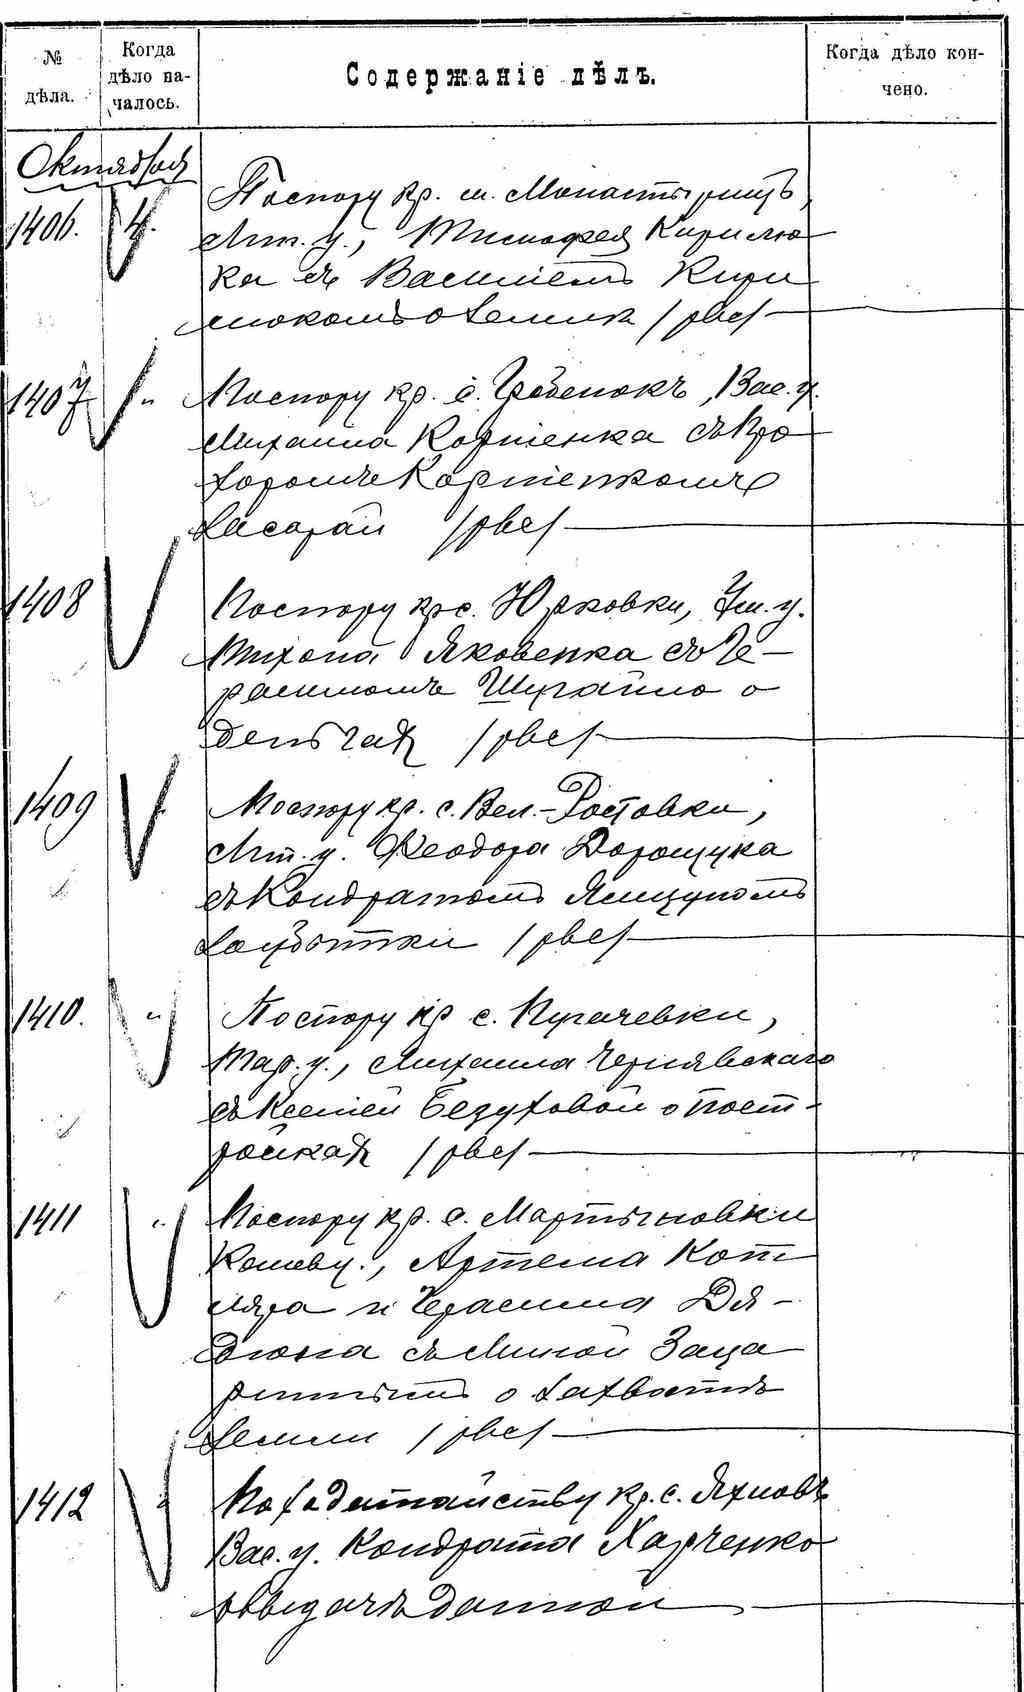 № дѣла.
Когда дѣло началось.
Содержаніе дѣлъ.
Когда дѣло кончено.
Октября
1406. 4. По спору кр. м. Монастырищъ,
Лип. у., Тимофея Кирилю-
ка съ Василіемъ Кири
люкомъ о земли
1407 " По спору кр. с. Гребенокъ, Вас. у.
Михаила Корніенка съ Про
хоромъ Корніенкомъ
за сарай
1408 По спору кр. с. Юрковки, Ум. у.
Тихона Яковенка съ Ге-
расимомъ Шугайло о
деньгахъ
1409 По спору кр. с. Вел.-Ростовки,
Лип. у. Феодора Дорощука
съ Кондратомъ Ящуномъ
за убытки
1410. " По спору кр с. Пугачевки,
Тар. у., Михаила Чернявскаго
съ Ксенией Безуховой о пост-
ройкахъ
1411 " По спору кр. с. Мартыновки
Каневу., Артема Кот
ляра и Герасима Дя-
дюна съ Миной Заца
риннымъ о захватѣ
земли
1412 " По ходатайству кр. с. Яхновъ
Вас. у. Кондрата Харченко
о выдачѣ данной